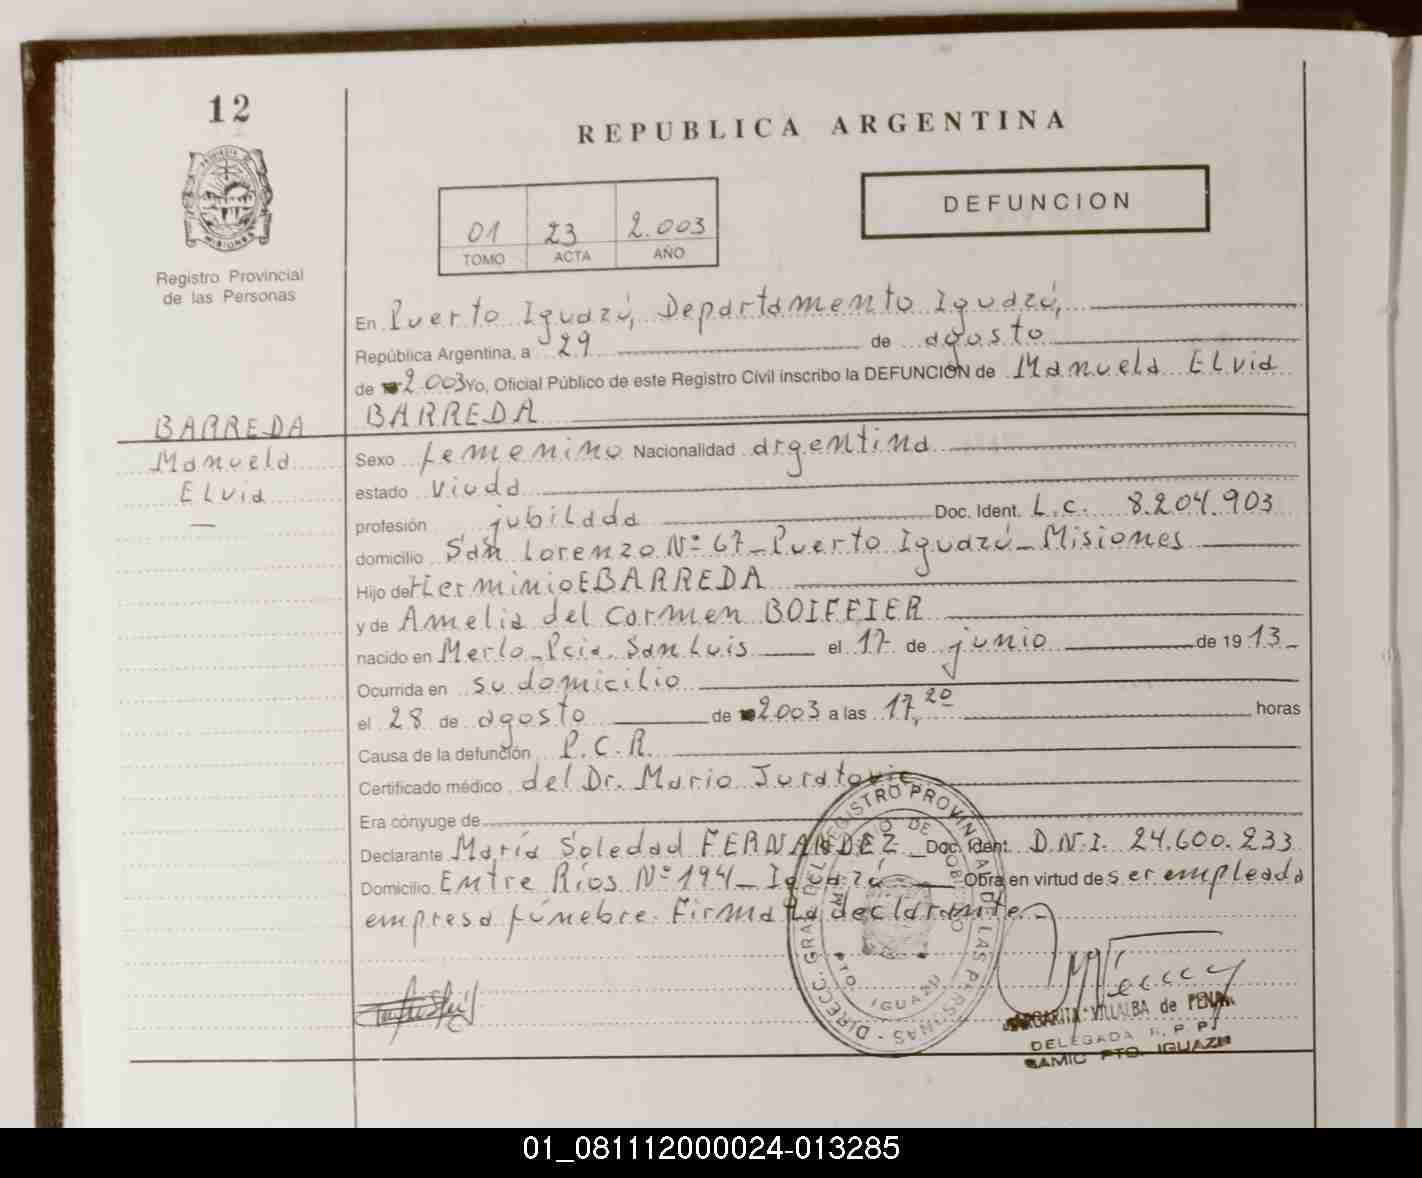 12
REPUBLICA ARGENTINA
DEFUNCION
01 23 2.003
TOMO ACTA AÑO
Registro Provincial
de las Personas
En Puerto Iguazú, Departamento Iguazú,
República Argentina, a 29 de agosto
de 2.003 Yo, Oficial Público de este Registro Civil inscribo la DEFUNCIÓN de Manuela Elvia
BARREDA
BARREDA
Manuela
Elvia
Sexo femenino Nacionalidad argentina
estado viuda
profesión jubilada Doc. Ident. L.C. 8.204.903
domicilio San Lorenzo Nº 67_Puerto Iguazú_Misiones
Hijo de Herminio E BARREDA
y de Amelia del Carmen BOIFFIER
nacido en Merlo_Pcia. San Luis el 17 de junio de 1913
Ocurrida en su domicilio
el 28 de agosto de 2.003 a las 17,20 horas
Causa de la defunción P.C.R.
Certificado médico del Dr. Mario Juratovic
Era cónyuge de
Declarante María Soledad FERNANDEZ Doc. Ident. D.N.I. 24.600.233
Domicilio Entre Ríos Nº 194_Iguazú Obra en virtud de ser empleada
empresa fúnebre. Firma la declarante.
DIRECC. GRAL DEL REGISTRO PROVINCIAL DE LAS PERSONAS
PTO. IGUAZU
MARGARITA VILLALBA de
DELEGADA R. P. P.
SAMIC PTO. IGUAZU
01_081112000024-013285